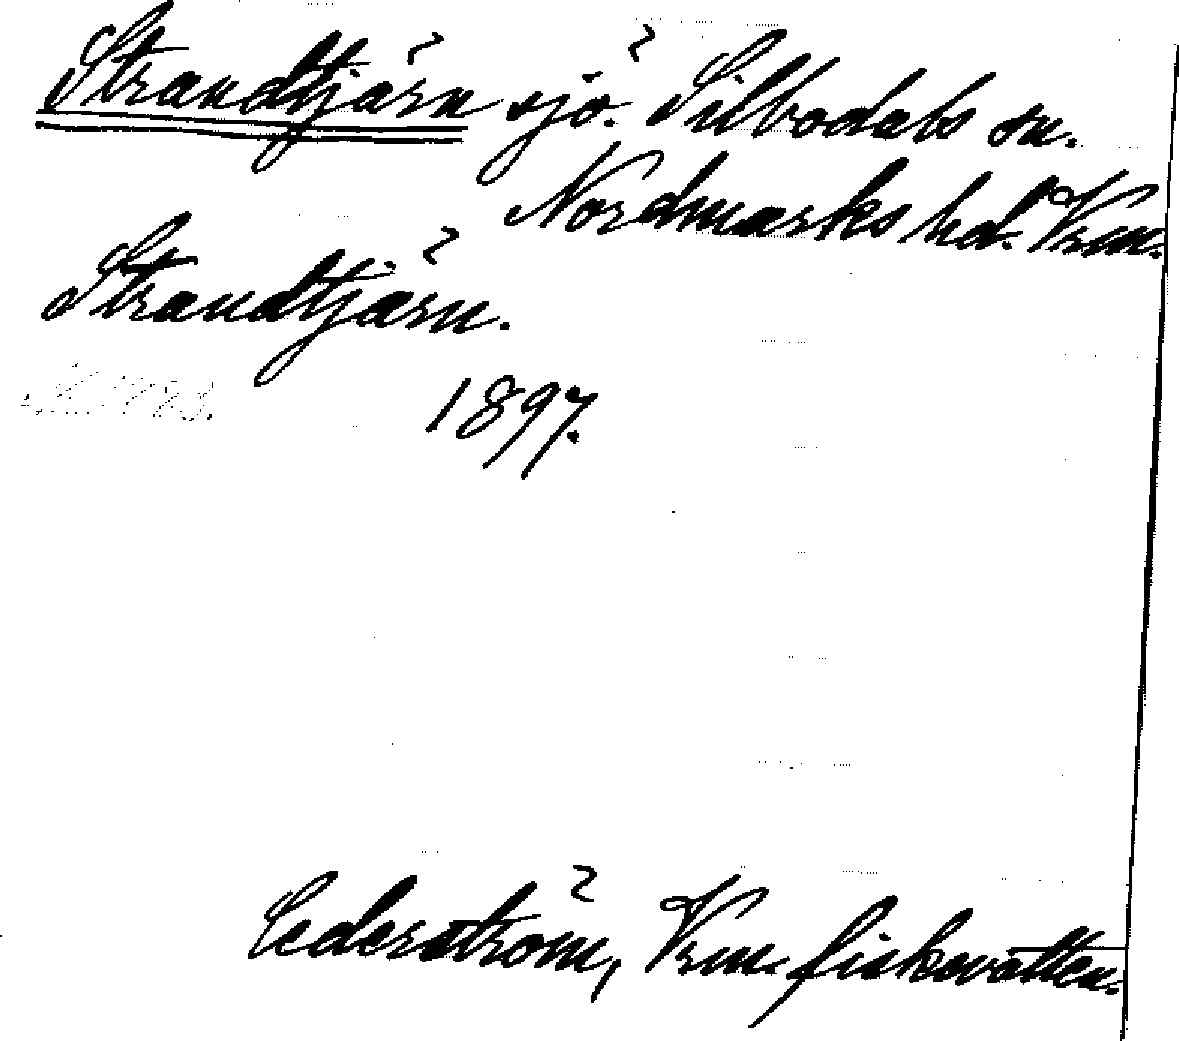 Strandtjärn sjö. Silbodals sn.
Nordmarks hd. Vrm.
Strandtjärn.
1897.
Cederström, Vrm. fiskevatten.